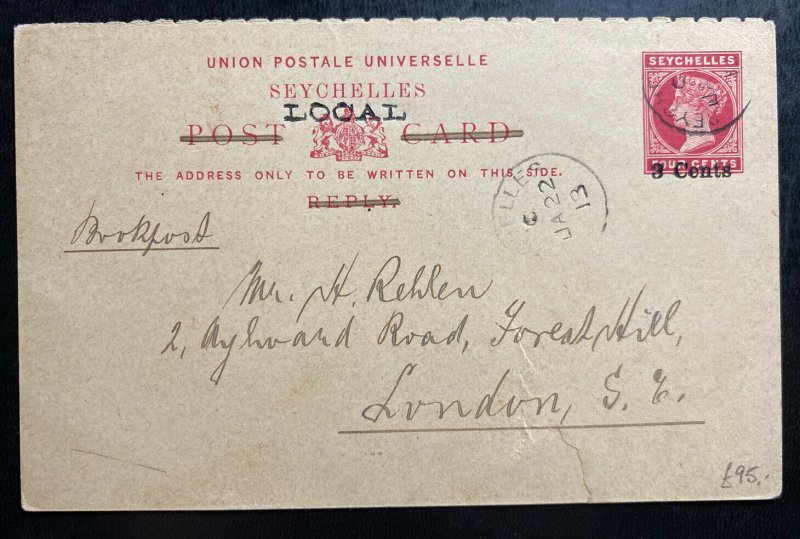 UNION POSTALE UNIVERSELLE
SEYCHELLES
LOCAL
POST CARD
THE ADDRESS ONLY TO BE WRITTEN ON THIS SIDE.
REPLY.
SEYCHELLES
FOUR CENTS
3 Cents
C
JA 22
13
Bookpost
Mr. H. Rehlen
2, Aylward Road, Forest Hill,
London, S. E.
£95.-